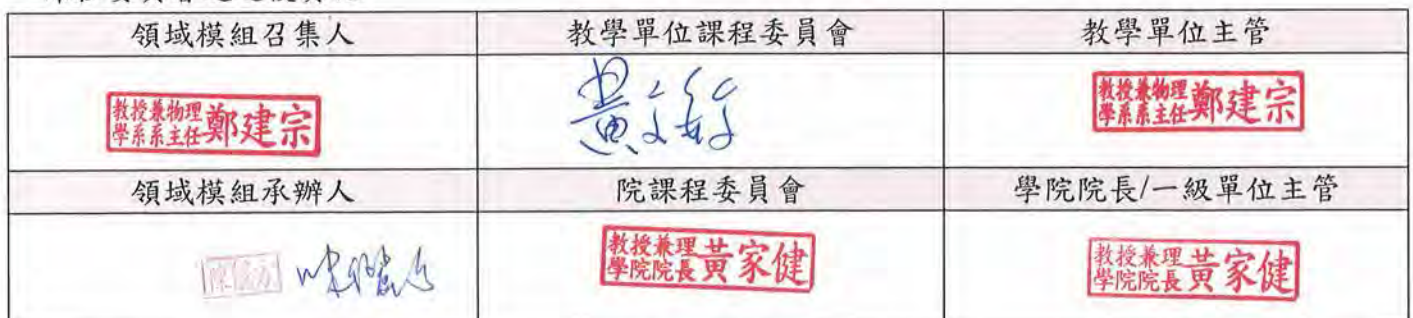 領域模組召集人 教學單位課程委員會 教學單位主管
教授兼物理學系系主任 鄭建宗 教授兼物理學系系主任 鄭建宗
領域模組承辦人 院課程委員會 學院院長/一級單位主管
教授兼理學院院長 黃家健 教授兼理學院院長 黃家健